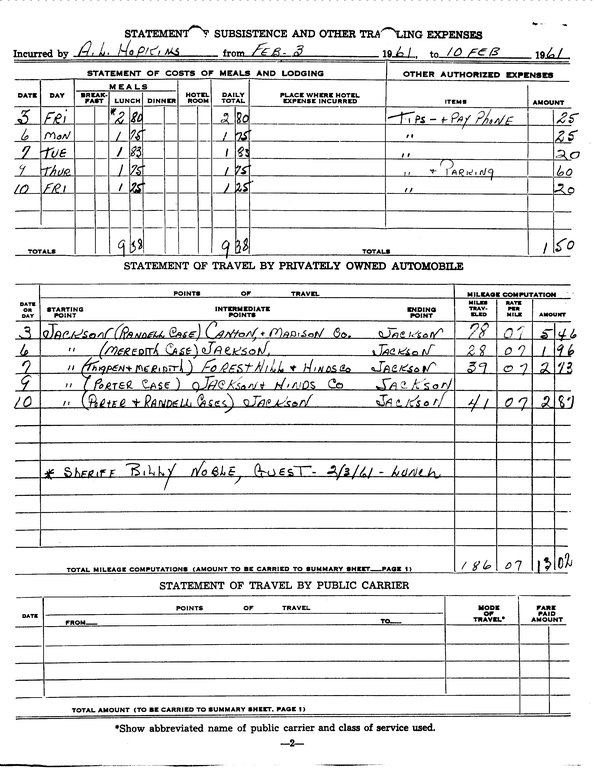 STATEMENT OF SUBSISTENCE AND OTHER TRAVELING EXPENSES
Incurred by A.L. HOPKINS from FEB-3 1961, to 10 FEB 1961
STATEMENT OF COSTS OF MEALS AND LODGING OTHER AUTHORIZED EXPENSES
DATE DAY MEALS BREAK-FAST LUNCH DINNER HOTEL ROOM DAILY TOTAL PLACE WHERE HOTEL EXPENSE INCURRED ITEMS AMOUNT
3 FRI *2 80 2 80 TIPS - + PAY PHONE 25
6 MON 1 75 1 75 " 25
7 TUE 1 83 1 83 " 20
9 THUR 1 75 1 75 " + PARKING 60
10 FRI 1 25 1 25 " 20
TOTALS 9 38 9 38 TOTALS 1 50
STATEMENT OF TRAVEL BY PRIVATELY OWNED AUTOMOBILE
POINTS OF TRAVEL MILEAGE COMPUTATION
DATE OR DAY STARTING POINT INTERMEDIATE POINTS ENDING POINT MILES TRAV-ELED RATE PER MILE AMOUNT
3 JACKSON (RANDELL CASE) CANTON, + MADISON CO. JACKSON 78 07 5 46
6 " (MEREDITH CASE) JACKSON, JACKSON 28 07 1 96
7 " + MERIDITH) FOREST HILL + HINDS CO JACKSON 39 07 2 73
9 " (PORTER CASE) JACKSON + HINDS CO JACKSON
10 " (PORTER + RANDELL CASES) JACKSON JACKSON 41 07 2 87
* SHERIFF BILLY NOBLE, GUEST - 2/3/61 - LUNCH
TOTAL MILEAGE COMPUTATIONS (AMOUNT TO BE CARRIED TO SUMMARY SHEET PAGE 1) 186 07 13 02
STATEMENT OF TRAVEL BY PUBLIC CARRIER
DATE POINTS OF TRAVEL MODE OF TRAVEL* FARE PAID AMOUNT
FROM TO
TOTAL AMOUNT (TO BE CARRIED TO SUMMARY SHEET, PAGE 1)
*Show abbreviated name of public carrier and class of service used.
—2—